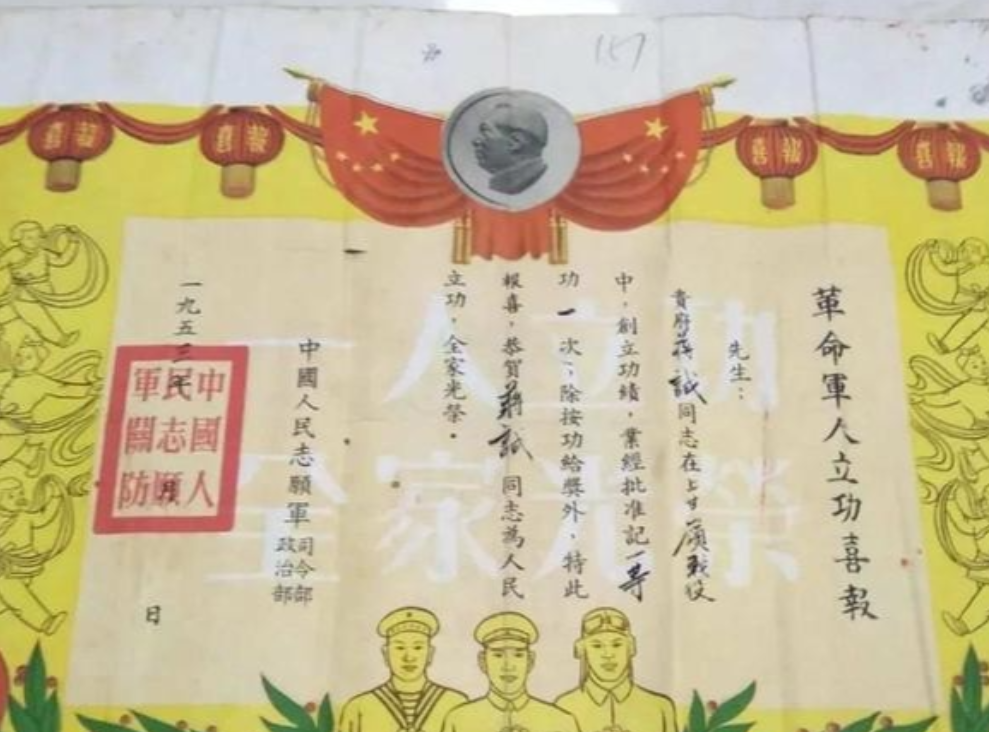 157
喜報
喜報
喜報
喜報
革命軍人立功喜報
先生：
貴府蔣誠同志在上甘嶺戰役
中，創立功績，業經批准記一等
功一次；除按功給獎外，特此
報喜，恭賀蔣誠同志為人民
立功，全家光榮。
中國人民志願軍司令部
政治部
一九五三年月日
中國人
民志願
軍關防
一人立功
全家光榮